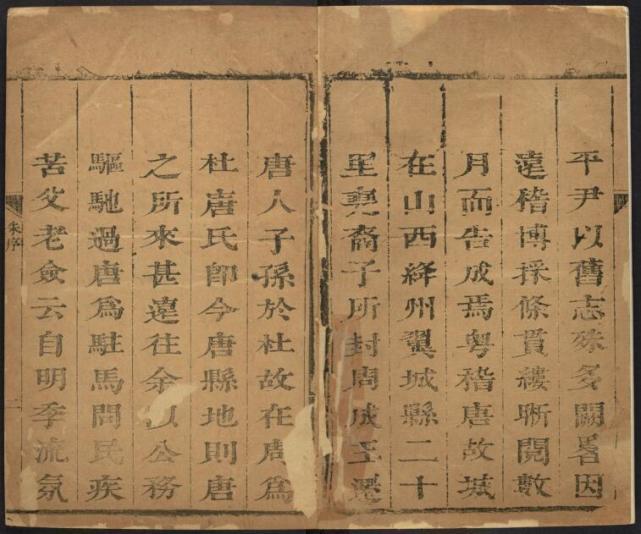 平尹以舊志殊多闕畧因
遠稽博採條貫縷晰閱數
月而告成焉粤稽唐故城
在山西絳州翼城縣二十
里堯裔子所封周成王遷
唐人子孫於杜故在周爲
杜唐氏卽今唐縣地則唐
之所來甚遠往余以公務
驅馳過唐爲駐馬問民疾
苦父老僉云自明季流氛
朱序